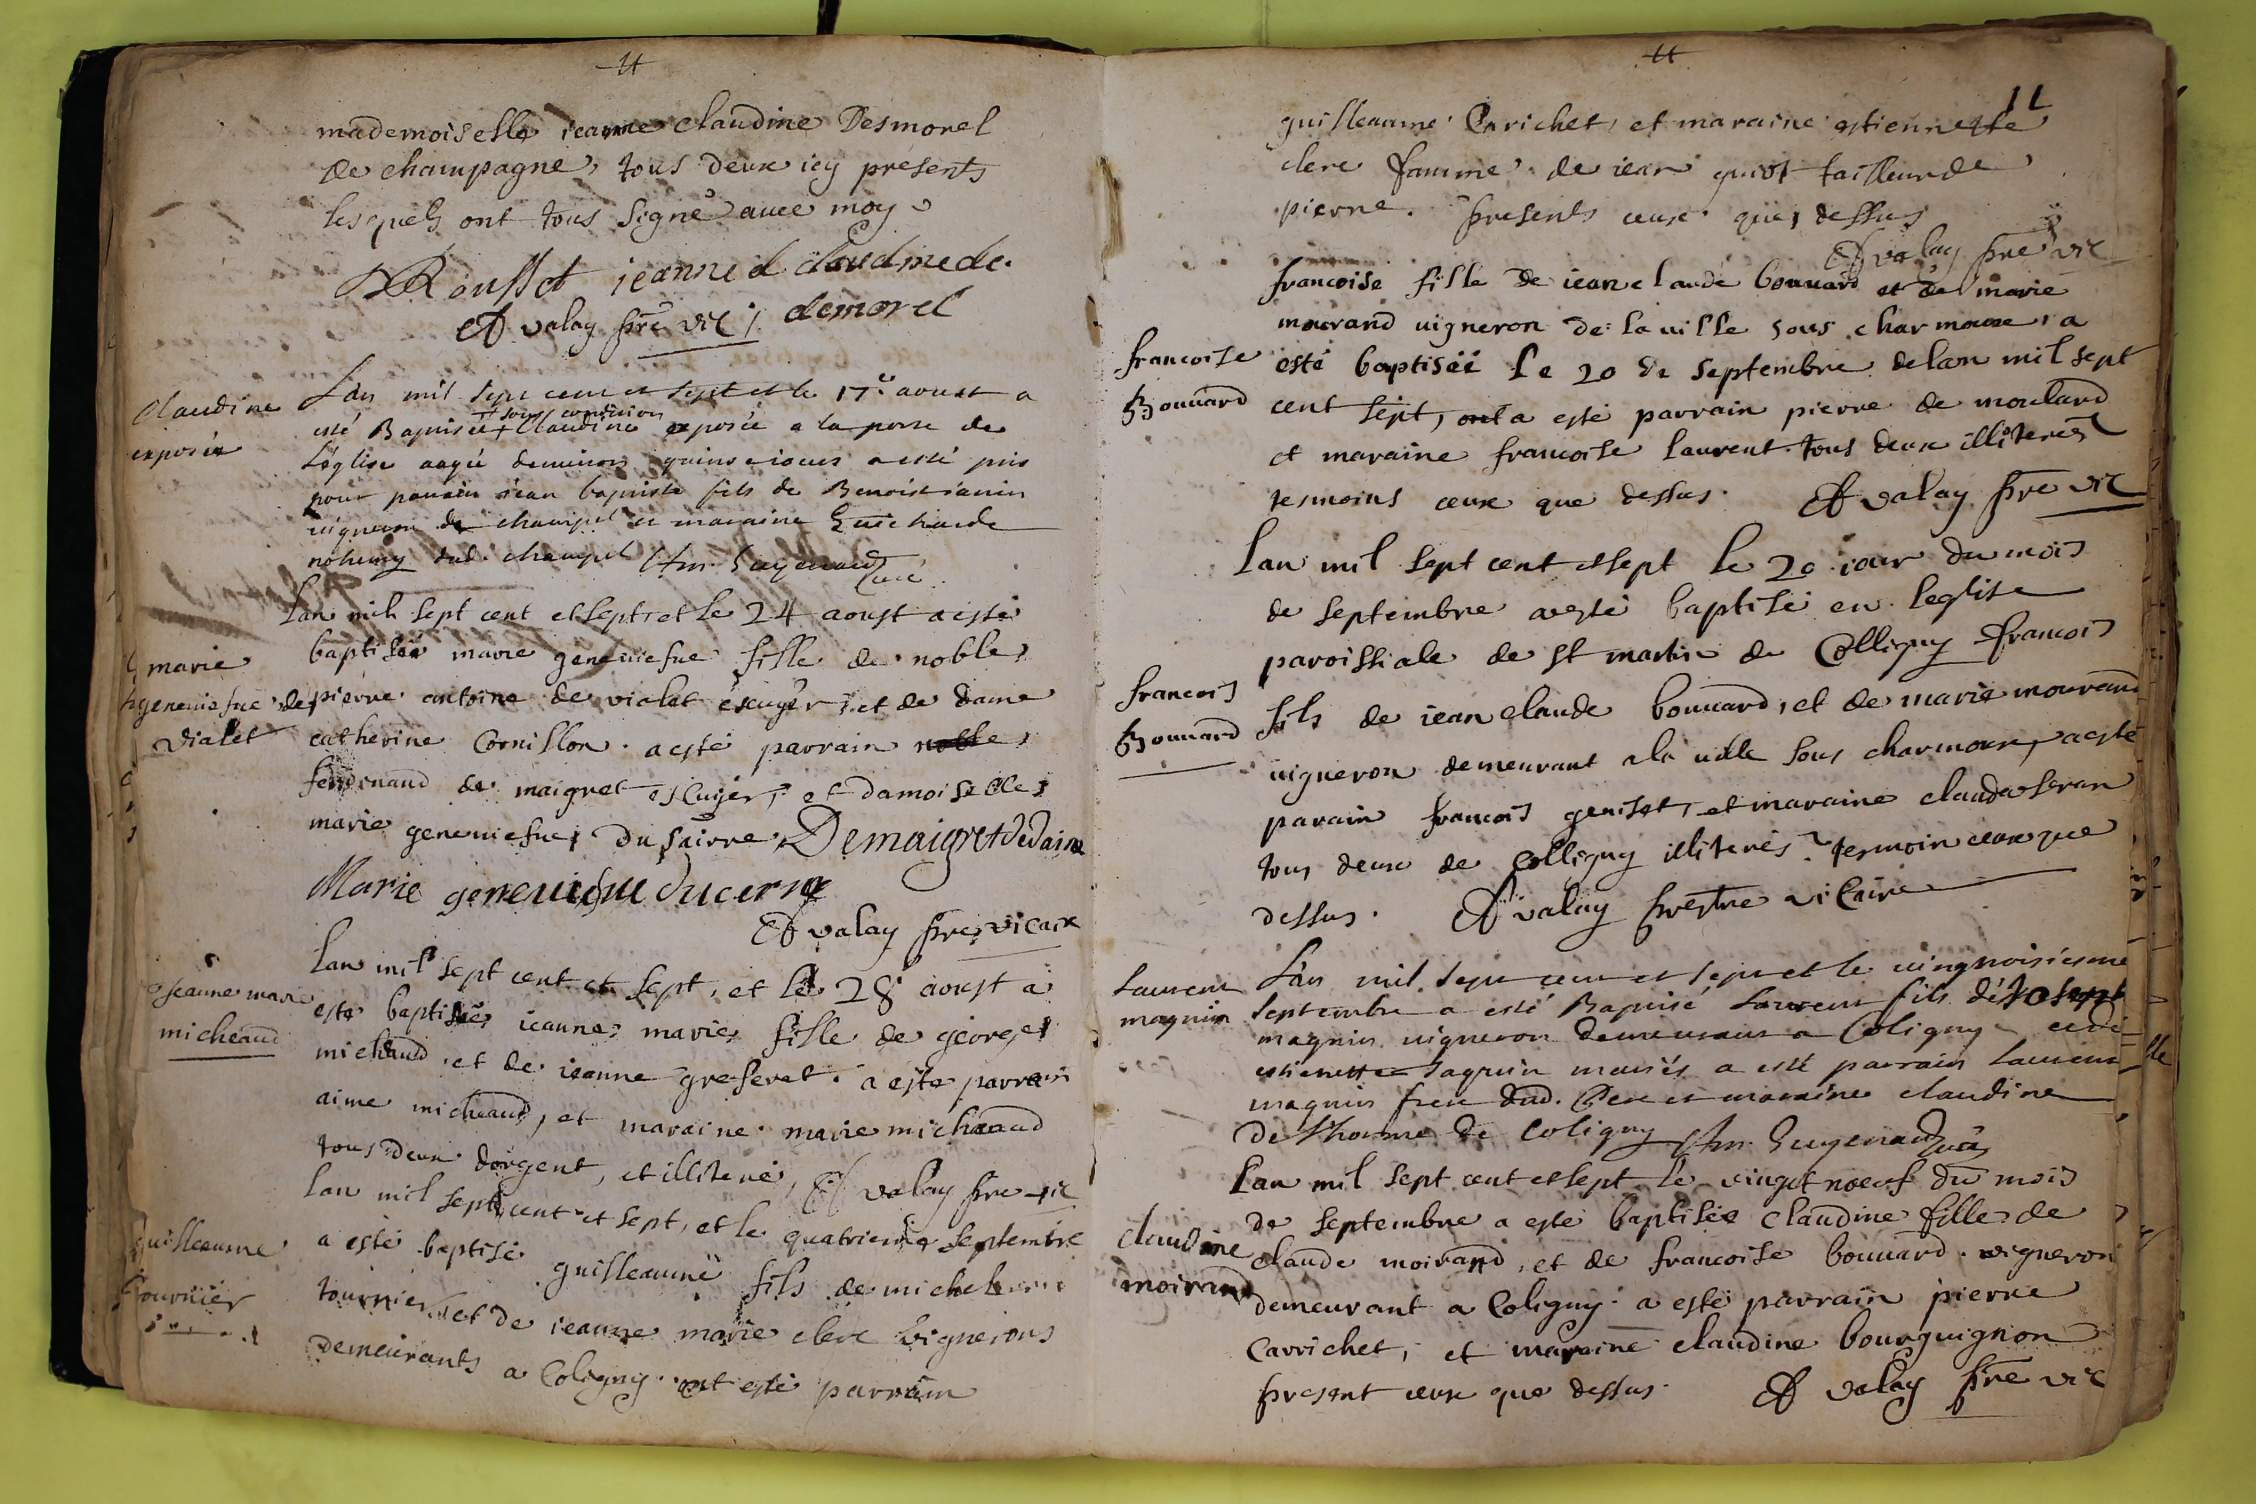 mademoiselle jeanne claudine Desmorel
de champagne, tous deux icy présents
lesquels ont tous signé avec moy
Rousset jeanne d claudine de.
A valay pre vic / demorel
Claudine
exposée
L'an mil sept cent et sept et le 17e aoust a
esté Baptisée + Claudine exposée a la porte de
+ sous condition
L'église aagée d'environ quinse jours a esté pris
pour parrain jean baptiste fils de Benoist janin
vigneron de champel et maraine Guicharde
dud. champel Guyenaud curé
marie
geneuiefue de
vialet
Lan mil sept cent et sept et le 24 aoust a esté
baptisée marie geneuiefue fille de noble
pierre antoine de vialet escuyer, et de dame
catherine Cornillon. a esté parrain noble
ferdinand de maigret escuyer, et damoiselle
marie geneuiefue du saivre Demaigret
Marie geneuiefue
A valay pre vicaire
Jeanne marie
micheaud
Lan mil sept cent et sept, et le 28 aoust a
esté baptisée jeanne marie fille de george
michaud et de jeanne greferet. a esté parrain
aime micheaud, et maraine marie michaaud
tous deux dorgent, et illiteré, A valay pre vic
guilleaume
Tournier
Lan mil sept cent et sept, et le quatrieme septembre
a esté baptisé guilleaume fils de michel
tournier et de jeanne marie clere vignerons
demeurants a Coligny. ont esté parrain
11
guilleaume Carichet, et maraine estiennette
clere famme de jean guiot tailleur de
pierre. presents ceux que dessus
A valay pre vic
francoise
Bouuard
francoise fille de jean claude bouuard et de marie
mourand uigneron de la uille sous charmoux, a
esté baptisée le 20 de septembre de lan mil sept
cent sept, ont a esté parrain pierre de moulard
et maraine francoise laurent tous deux illiterés
tesmoins ceux que dessus. A valay pre vic
francois
Bouuard
Lan mil sept cent et sept le 20 jour du mois
de septembre a esté baptisé en leglise
paroissiale de st martin de Colligny francois
fils de jean claude bouuard, et de marie mourand
uigneron demeurant a la uille sous charmoux, a esté
parain francois genisot, et maraine clauda seran
tous deux de Colligny illiterés. tesmoin ceux que
dessus. A valay prestre vicaire
Laurent
magnin
L'an mil sept cent et sept et le uingtroisiesme
septembre a esté Baptisé Laurent fils de Joseph
magnin uigneron demeurant a Coligny et de
estienette jaquin mariés a esté parrain laurent
magnin frere dud. Pere et maraine claudine
de Lhomme de Coligny Guyenaud curé
claudine
moirand
Lan mil sept cent et sept le vingt noeuf du mois
de septembre a esté baptisée Claudine fille de
claude moirand, et de francoise bouuard. vigneron
demeurant a Coligny. a esté parrain pierre
Carrichet, et maraine claudine bourguignon
present ceux que dessus. A valay pre vic